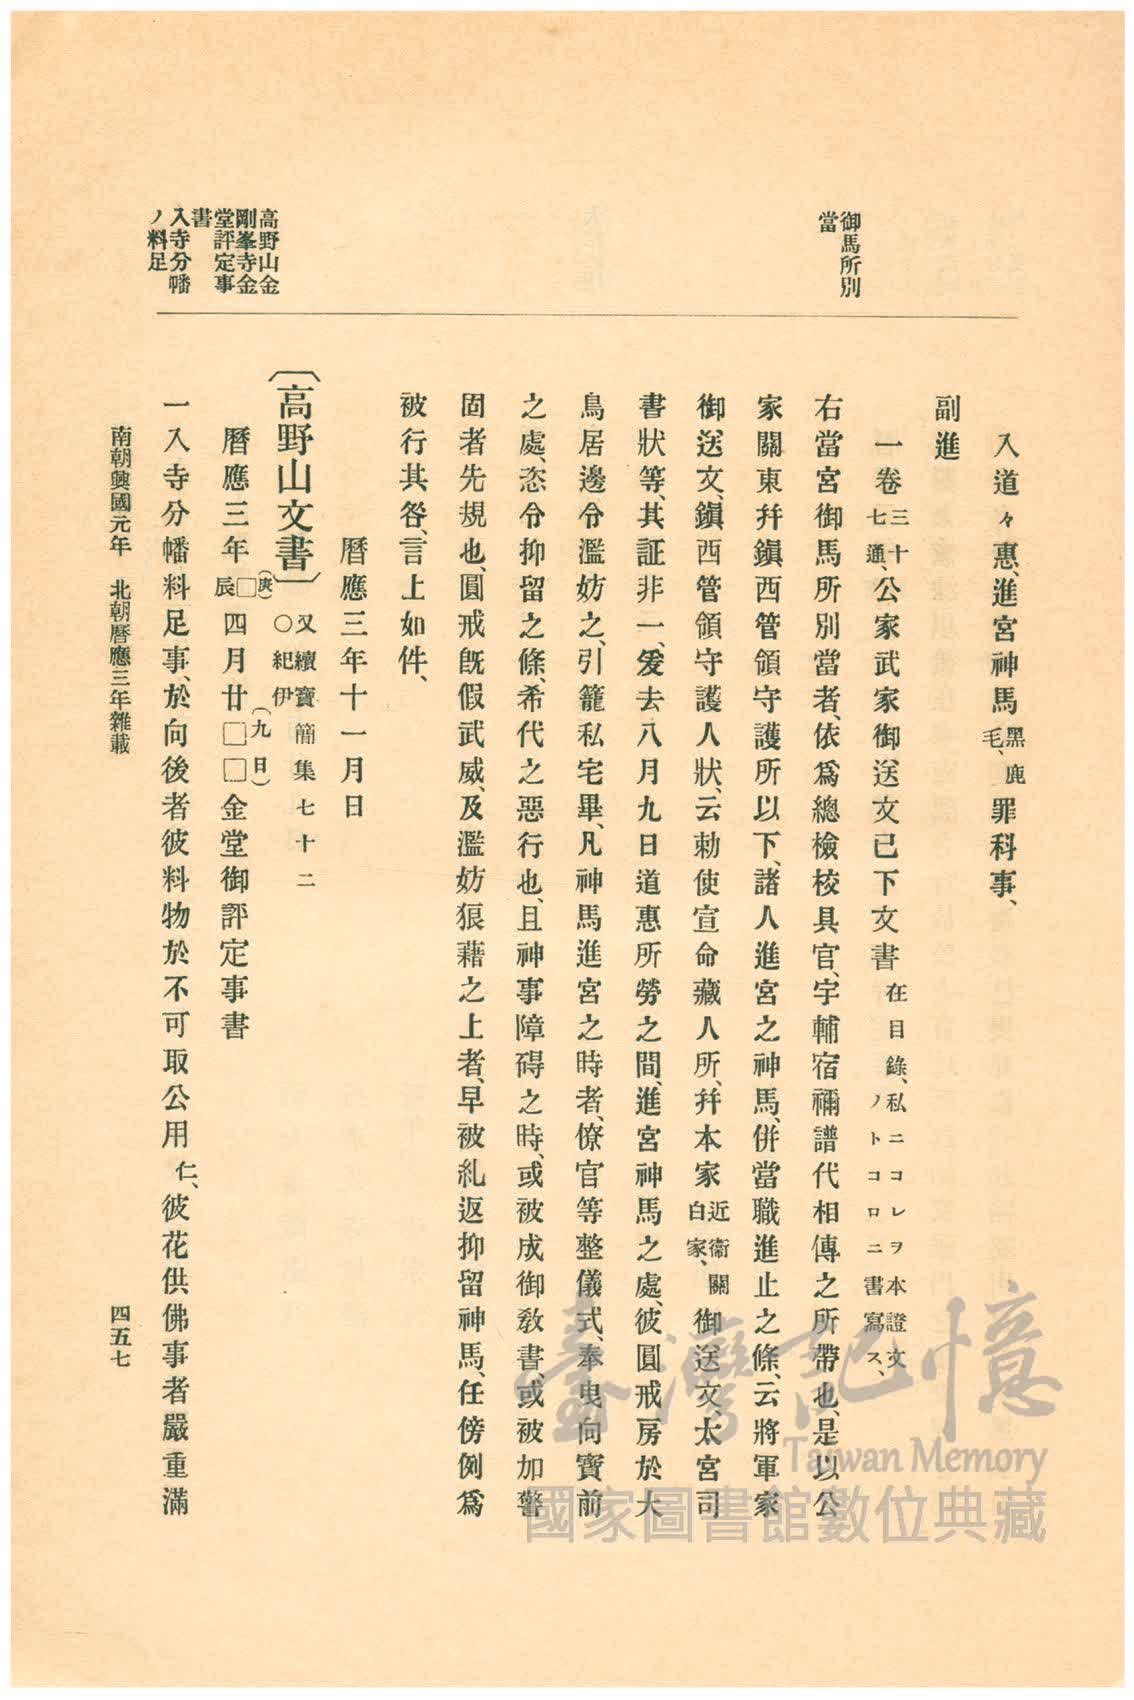 御馬所別
當
入道々惠、進宮神馬黑鹿毛、罪科事、
副進
一卷三十七通、公家武家御送文已下文書在目錄、私ニコレヲ本證文ノトコロニ書寫ス、
右當宮御馬所別當者、依爲總檢校具官、宇輔宿禰譜代相傳之所帶也、是以公
家關東幷鎭西管領守護所以下、諸人進宮之神馬、併當職進止之條、云將軍家
御送文、鎭西管領守護人狀、云勅使宣命藏人所、幷本家近衞關白家、御送文、太宮司
書狀等、其証非一、爰去八月九日道惠所勞之間、進宮神馬之處、彼圓戒房於大
鳥居邊令濫妨之、引籠私宅畢、凡神馬進宮之時者、僚官等整儀式、奉曳向寶前
之處、恣令抑留之條、希代之惡行也、且神事障碍之時、或被成御敎書、或被加警
固者先規也、圓戒旣假武威、及濫妨狼藉之上者、早被糺返抑留神馬、任傍例爲
被行其咎、言上如件、
曆應三年十一月日
高野山金
剛峯寺金
堂評定事
書
入寺分幡
ノ料足
〔高野山文書〕 又續寶簡集七十二 ○紀伊
曆應三年□(庚)辰四月廿□□(九日)金堂御評定事書
一入寺分幡料足事、於向後者彼料物於不可取公用仁、彼花供佛事者嚴重滿
南朝興國元年 北朝曆應三年雜載
四五七
臺灣記憶
Taiwan Memory
國家圖書館數位典藏